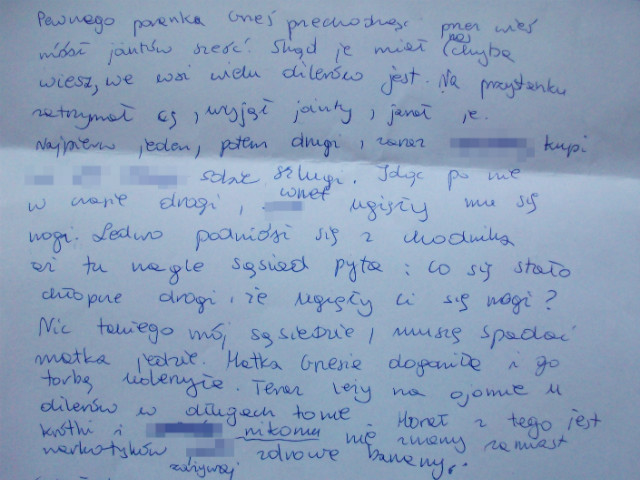 Pewnego poranka Grześ przechodząc przez wieś
niósł jointów sześć. Skąd je miał (chyba
wiesz, we wsi wielu dilerów jest. Na przystanku
zatrzymał się, wyjął jointy, jarał je.
Najpierw jeden, potem drugi, zaraz kupi
sobie szlugi. Idąc po nie
w czasie drogi, wnet ugięły mu się
nogi. Ledwo podniósł się z chodnika
aż tu nagle sąsiad pyta: co się stało
chłopcze drogi, że ugięły ci się nogi?
Nic takiego mój sąsiedzie, muszę spadać
matka jedzie. Matka Grzesia dogoniła i go
torbą uderzyła. Teraz leży na ojomie u
dilerów w długach tonie Morał z tego jest
krótki i nikomu nie znany zamiast
narkotyków zdrowe banany.
zażywaj